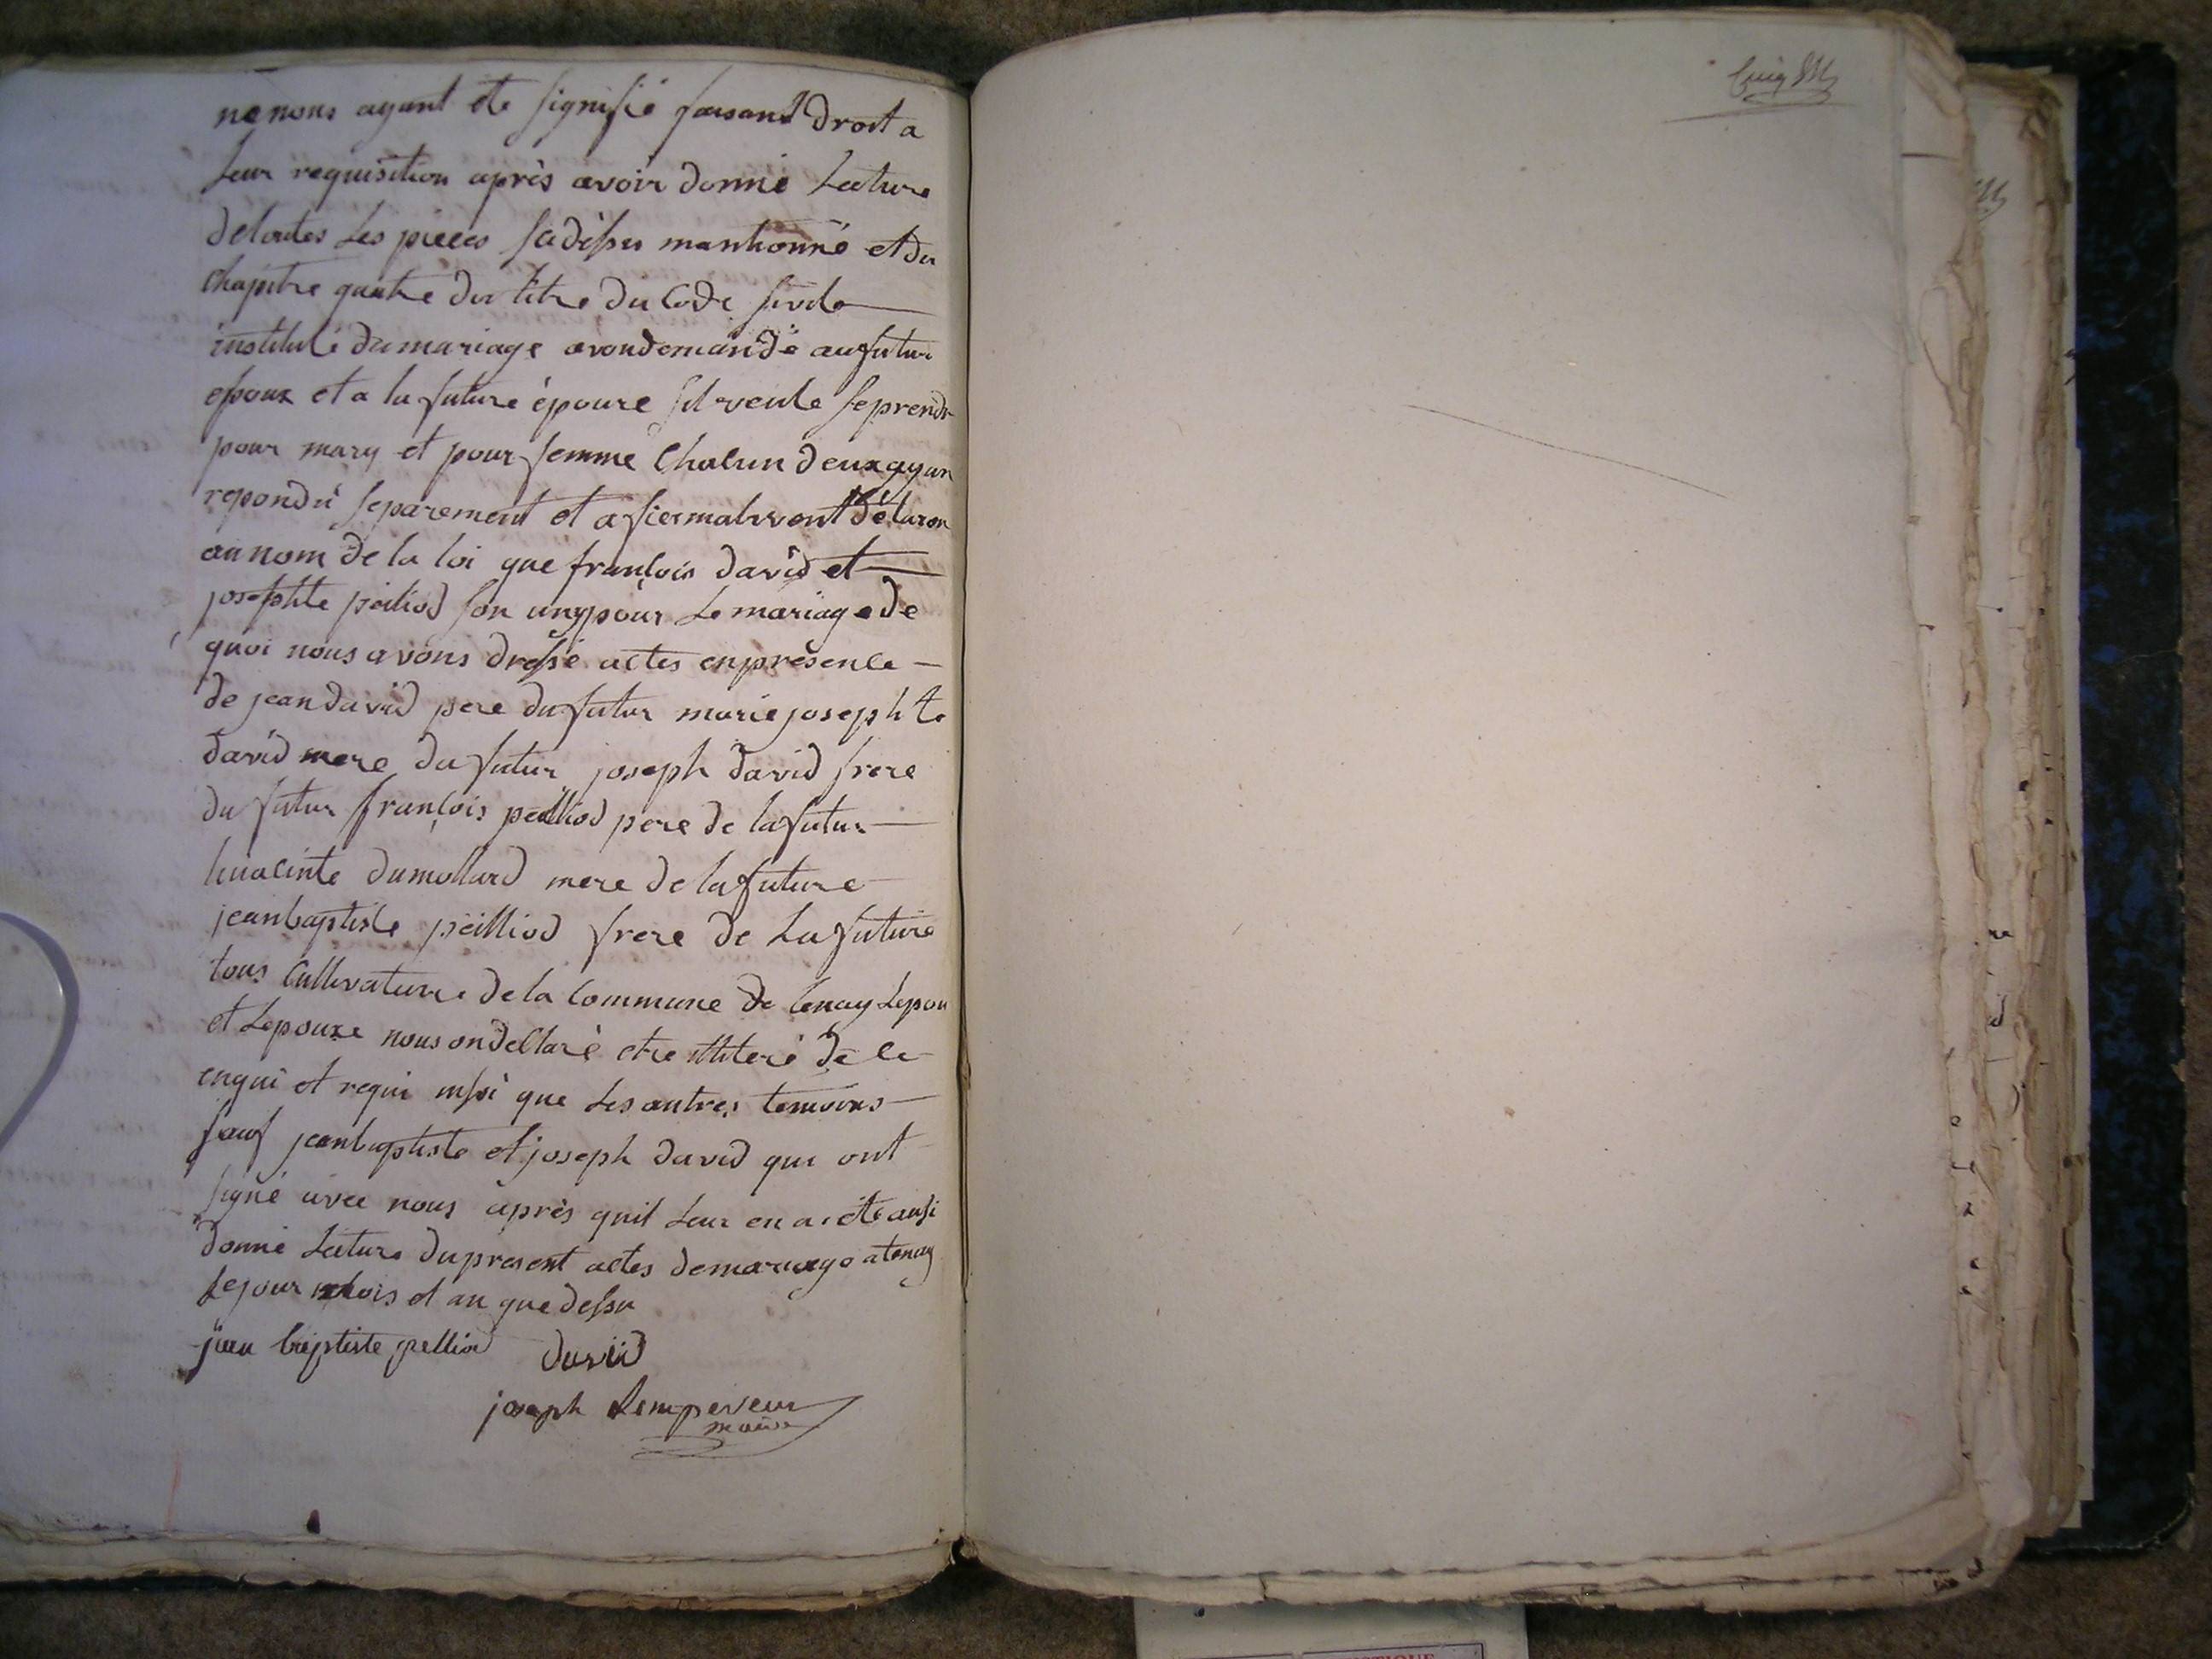 ne nous ayant ete signifié faisant droit a
leur requisition après avoir donné Lecture
de toutes Les pieces sidessus manthonné et du
chapitre quatre du titre du Code sivile
institulé du mariage avondemandé au futur
epoux et a la future épouxe sil veule se prendr
pour mary et pour femme Chacun deux ayan
repondu separement et afiermativent déclaron
au nom de la loi que françois david et
josephte peiliod son uny pour Le mariage de
quoi nous avons dressé actes en présence
de jean david pere du futur marie josephte
david mere du futur joseph david frere
du futur françois peilliod pere de la futur
huacinte dumollard mere de la future
jean baptiste peilliod frere de La future
tous Cultivature de la Commune de tenay Lepou
et Lepouxe nous on declaré etre illiteré de ce
enqui et requi insi que Les autres temoins
sauf jean baptiste et joseph david qui ont
signé avec nous après quil Leur en a été ausi
donné Lecture du present actes de mariage a tenay
Le jour mois et an que dessu
jean baptiste pelliod david
joseph Lempereur
maire